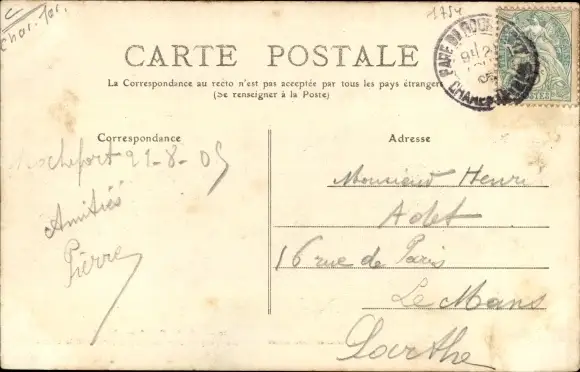 Char. Tor.
1754
CARTE POSTALE
La Correspondance au recto n'est pas acceptée par tous les pays étrangers
(Se renseigner à la Poste)
Correspondance
Rochefort 21-8-05
Amitiés
Pierre
Adresse
Monsieur Henri
Adet
16 rue de Paris
Le Mans
Sarthe